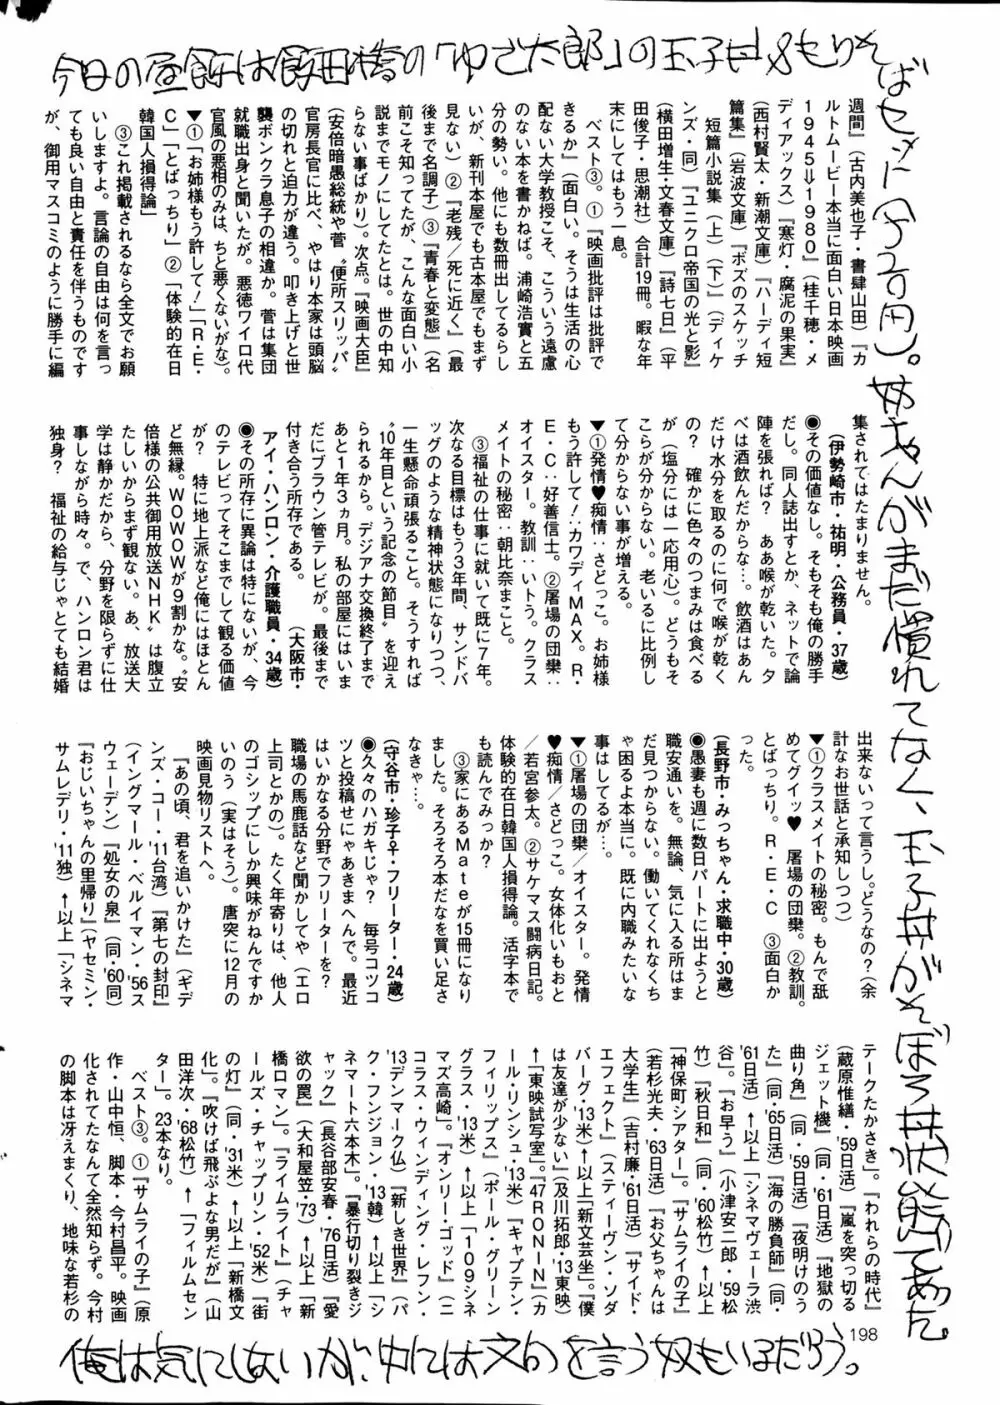 今日の昼飯は飯田橋の「ゆで太郎」の玉子丼&もりそ
ばセット(円)。姉ちゃんがまだ慣れてなく、玉子丼がそぼろ丼状態であった。
週間』(古内美也子・書肆山田)『カ
ルトムービー本当に面白い日本映画
1945⇩1980』(桂千穂・メ
ディアックス)『寒灯・腐泥の果実』
(西村賢太・新潮文庫)『ハーディ短
篇集』(岩波文庫)『ボズのスケッチ
短篇小説集(上)(下)』(ディケ
ンズ・同)『ユニクロ帝国の光と影』
(横田増生・文春文庫)『詩七日』(平
田俊子・思潮社)合計19冊。暇な年
末にしてはもう一息。
ベスト③。①『映画批評は批評で
きるか』(面白い。そうは生活の心
配ない大学教授こそ、こういう遠慮
のない本を書かねば。浦崎浩實と五
分の勢い。他にも数冊出してるらし
いが、新刊本屋でも古本屋でもまず
見ない)②『老残/死に近く』(最
後まで名調子)③『青春と変態』(名
前こそ知ってたが、こんな面白い小
説までモノにしてたとは。世の中知
らない事ばかり)。次点。『映画大臣』
(安倍暗愚総統や菅〝便所スリッパ〟
官房長官に比べ、やはり本家は頭脳
の切れと迫力が違う。叩き上げと世
襲ボンクラ息子の相違か。菅は集団
就職出身と聞いたが。悪徳ワイロ代
官風の悪相のみは、ちと悪くないがな)。
▼①「お姉様もう許して!」「R・E・
C」「とばっちり」②「体験的在日
韓国人損得論」
③これ掲載されるなら全文でお願
いしますよ。言論の自由は何を言っ
ても良い自由と責任を伴うものです
が、御用マスコミのように勝手に編
集されてはたまりません。
(伊勢崎市・祐明・公務員・37歳)
◉その価値なし。そもそも俺の勝手
だし。同人誌出すとか、ネットで論
陣を張れば? ああ喉が乾いた。夕
べは酒飲んだからな…。飲酒はあん
だけ水分を取るのに何で喉が乾く
の? 確かに色々のつまみは食べる
が(塩分には一応用心)。どうもそ
こらが分からない。老いるに比例し
て分からない事が増える。
▼①発情♥痴情:さどっこ。お姉様
もう許して!:カワディMAX。R・
E・C:好善信士。②屠場の団欒:
オイスター。教訓:いトう。クラス
メイトの秘密:朝比奈まこと。
③福祉の仕事に就いて既に7年。
次なる目標はもう3年間、サンドバ
ッグのような精神状態になりつつ、
一生懸命頑張ること。そうすれば
〝10年目という記念の節目〟を迎え
られるから。デジアナ交換終了まで
あと1年3ヵ月。私の部屋にはいま
だにブラウン管テレビが。最後まで
付き合う所存である。 (大阪市・
アイ・ハンロン・介護職員・34歳)
◉その所存に異論は特にないが、今
のテレビってそこまでして観る価値
が? 特に地上派など俺にはほとん
ど無縁。WOWOWが9割かな。〝安
倍様の公共御用放送NHK〟は腹立
たしいからまず観ない。あ、放送大
学は静かだから、分野を限らずに仕
事しながら時々。で、ハンロン君は
独身? 福祉の給与じゃとても結婚
出来ないって言うし。どうなの?(余
計なお世話と承知しつつ)
▼①クラスメイトの秘密。もんで舐
めてグイッ♥ 屠場の団欒。②教訓。
とばっちり。R・E・C ③面白か
った。
(長野市・みっちゃん・求職中・30歳)
◉愚妻も週に数日パートに出ようと
職安通いを。無論、気に入る所はま
だ見つからない。働いてくれなくち
ゃ困るよ本当に。既に内職みたいな
事はしてるが…。
▼①屠場の団欒/オイスター。発情
♥痴情/さどっこ。女体化いもおと
/若宮参太。②サケマス闘病日記。
体験的在日韓国人損得論。活字本で
も読んでみっか?
③家にあるMateが15冊になり
ました。そろそろ本だなを買い足さ
なきゃ…。
(守谷市・珍子♀・フリーター・24歳)
◉久々のハガキじゃ? 毎号コッコ
ツと投稿せにゃあきまへんで。最近
はいかなる分野でフリーターを?
職場の馬鹿話など聞かしてや(エロ
上司とかの)。たく年寄りは、他人
のゴシップにしか興味がねんですか
いのう(実はそう)。唐突に12月の
映画見物リストへ。
『あの頃、君を追いかけた』(ギデ
ンズ・コー・'11台湾)『第七の封印』
(イングマール・ベルイマン・'56ス
ウェーデン)『処女の泉』(同・'60同)
『おじいちゃんの里帰り』(ヤセミン・
サムレデリ・'11独)↑以上「シネマ
テークたかさき」。『われらの時代』
(蔵原惟繕・'59日活)『嵐を突っ切る
ジェット機』(同・'61日活)『地獄の
曲り角』(同・'59日活)『夜明けのう
た』(同・'65日活)『海の勝負師』(同・
'61日活)↑以上「シネマヴェーラ渋
谷」。『お早う』(小津安二郎・'59松
竹)『秋日和』(同・'60松竹)↑以上
「神保町シアター」。『サムライの子』
(若杉光夫・'63日活)『お父ちゃんは
大学生』(吉村廉・'61日活)『サイド・
エフェクト』(スティーヴン・ソダ
バーグ・'13米)↑以上「新文芸坐」。『僕
は友達が少ない』(及川拓郎・'13東映)
↑「東映試写室」。『47RONIN』(カ
ール・リンシュ・'13米)『キャプテン・
フィリップス』(ポール・グリーン
グラス・'13米)↑以上「109シネ
マズ高崎」。『オンリー・ゴッド』(ニ
コラス・ウィンディング・レフン・
'13デンマーク仏)『新しき世界』(パ
ク・フンジョン・'13韓)↑以上「シ
ネマート六本木」。『暴行切り裂きジ
ャック』(長谷部安春・'76日活)『愛
欲の罠』(大和屋竺・'73)↑以上「新
橋ロマン」。『ライムライト』(チャ
ールズ・チャップリン・'52米)『街
の灯』(同・'31米)↑以上「新橋文
化」。『吹けば飛ぶよな男だが』(山
田洋次・'68松竹)↑「フィルムセン
ター」。23本なり。
ベスト③。①『サムライの子』(原
作・山中恒、脚本・今村昌平。映画
化されてたなんて全然知らず。今村
の脚本は冴えまくり、地味な若杉の
198
俺は気にしないが、中には文句を言う奴もいるだろう。